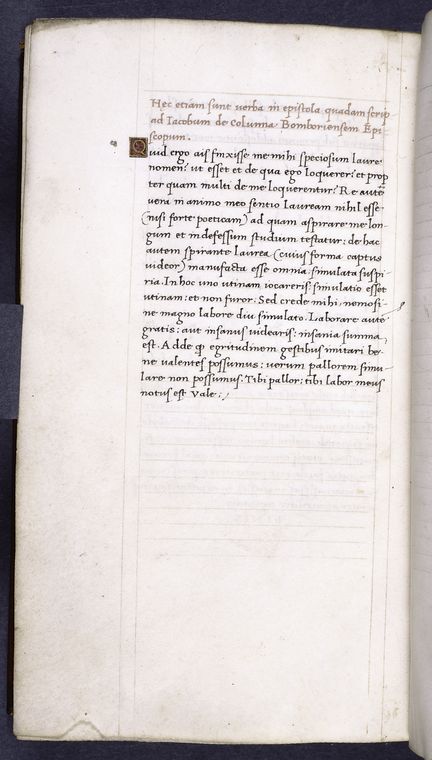 Hęc etiam sunt verba in epistola quadam scrip-
ad Iacobum de Columna Bomboriensem Epi-
scopum.
Quid ergo ais finxisse me mihi speciosum laure
nomen? ut esset et de qua ego loquerer? et prop
ter quam multi de me loquerentur? Re autē
vera in animo meo sentio lauream nihil esse
(nisi forte poeticam) ad quam aspirare me lon-
gum et indefessum studium testatur: de hac
autem spirante laurea (cuius forma captus
videor) manufacta esse omnia. simulata suspi-
ria. In hoc uno utinam iocareris: simulatio esset
utinam: et non furor. Sed crede mihi, nemo si-
ne magno labore diu simulat. Laborare autē
gratis: aut insanus videaris: insania summa
est. Adde ꝙ egritudinem gestibus imitari be-
ne valentes possumus: verum pallorem simu-
lare non possumus. Tibi pallor: tibi labor meus
notus est Vale:/